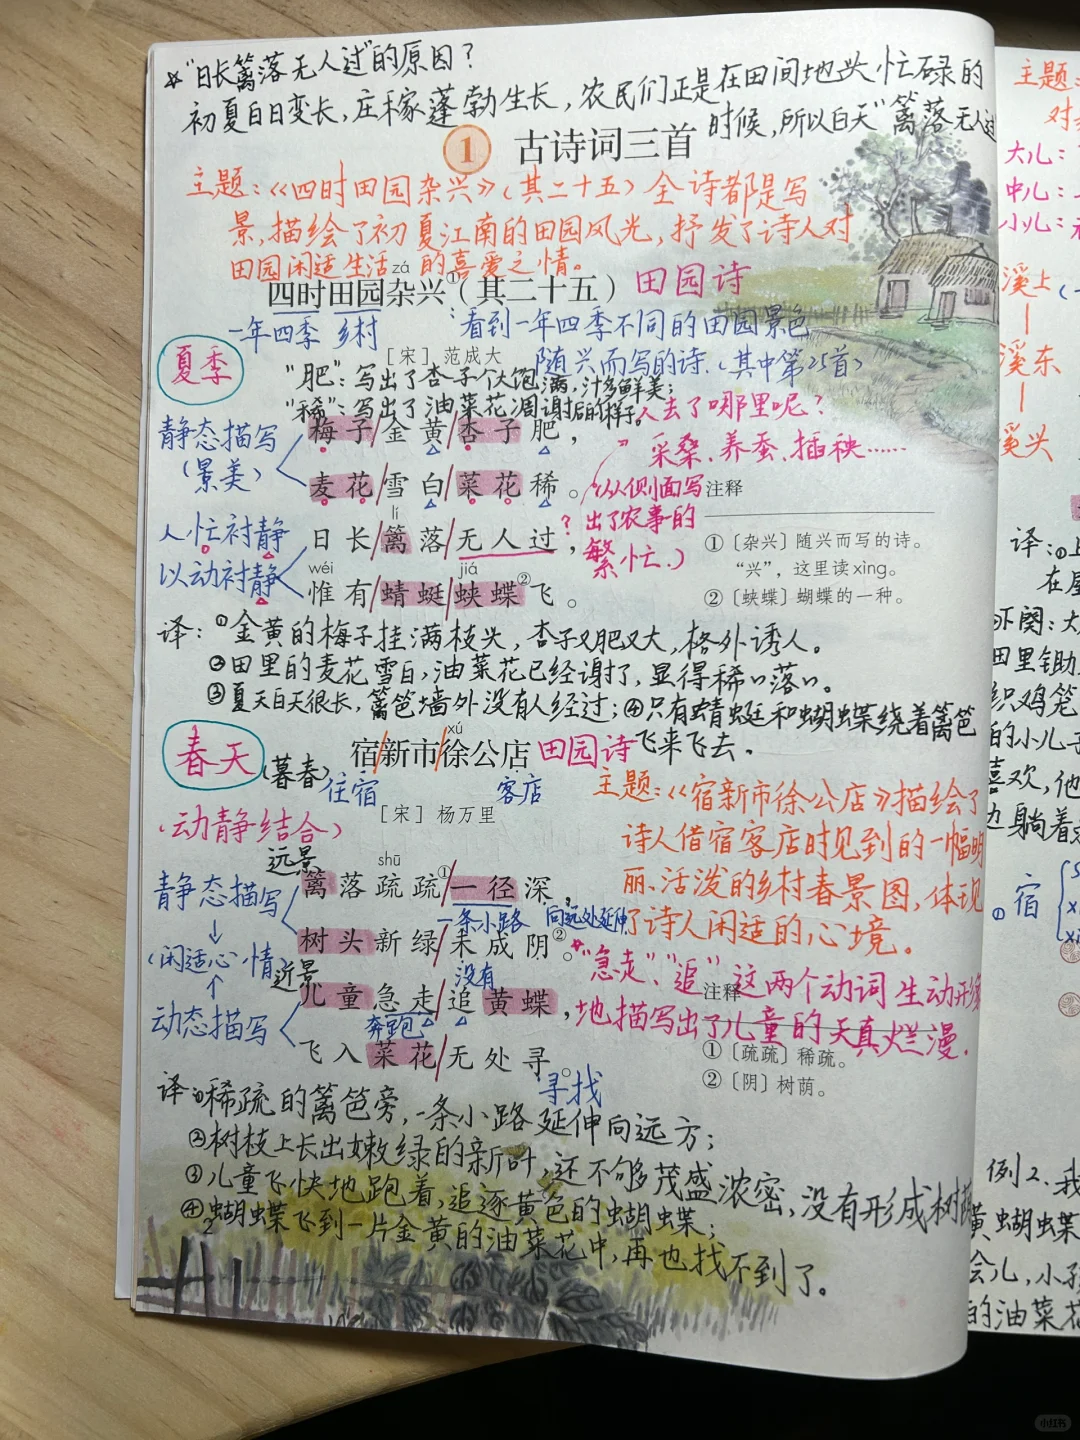 ☆“日长篱落无人过”的原因？
初夏白日变长，庄稼蓬勃生长，农民们正是在田间地头忙碌的
时候，所以白天“篱落无人过
1 古诗词三首
主题：《四时田园杂兴》（其二十五）全诗都是写
景，描绘了初夏江南的田园风光，抒发了诗人对
田园闲适生活的喜爱之情。
zá
四时田园杂兴①（其二十五） 田园诗
一年四季 乡村 ：看到一年四季不同的田园景色
随兴而写的诗.（其中第25首）
夏季
［宋］范成大
“肥”：写出了杏子个大饱满，汁多鲜美；
“稀”：写出了油菜花凋谢后的样子。
人去了哪里呢？
采桑、养蚕、插秧……
（从侧面写
出了农事的
繁忙.）
静态描写
（景美）
梅子/金黄/杏子肥，
麦花/雪白/菜花稀。
人忙衬静
以动衬静
lí
日长/篱落/无人过，？
wéi jiá
惟有/蜻蜓/蛱蝶②飞。
注释
①〔杂兴〕随兴而写的诗。
“兴”，这里读xìng。
②〔蛱蝶〕蝴蝶的一种。
译：①金黄的梅子挂满枝头，杏子又肥又大，格外诱人。
②田里的麦花雪白，油菜花已经谢了，显得稀稀落落。
③夏天白天很长，篱笆墙外没有人经过；④只有蜻蜓和蝴蝶绕着篱笆
飞来飞去。
春天（暮春）
xú
宿/新市/徐公店 田园诗
住宿 客店
［宋］杨万里
主题：《宿新市徐公店》描绘了
诗人借宿客店时见到的一幅明
丽、活泼的乡村春景图，体现
了诗人闲适的心境。
（动静结合）
远景
静态描写
↓
（闲适心情
↑
近景
动态描写
shū
篱落疏疏①/一径深，
一条小路 向远处延伸
树头新绿/未成阴②。
没有
儿童急走/追黄蝶，
奔跑
飞入菜花/无处寻。
寻找
*“急走”、“追”这两个动词生动形象
地描写出了儿童的天真烂漫.
注释
①〔疏疏〕稀疏。
②〔阴〕树荫。
译：①稀疏的篱笆旁，一条小路延伸向远方；
②树枝上长出嫩绿的新叶，还不够茂盛浓密，没有形成树荫
③儿童飞快地跑着，追逐黄色的蝴蝶；
④蝴蝶飞到一片金黄的油菜花中，再也找不到了。
2
主题：
对
大儿：
中儿：
小儿：
溪上（
溪东
溪头
译：①
在屋
环阅：大
田里锄
织鸡笼
的小儿子
喜欢，他
边躺着
① 宿
例2.我
黄蝴蝶
会儿，小孩
的油菜花
小红书